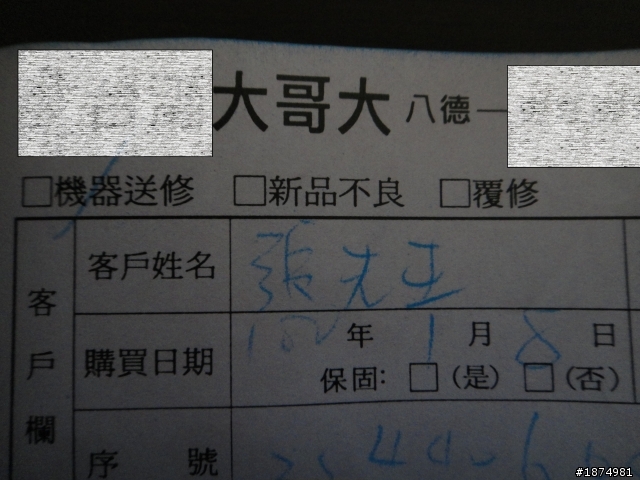 大哥大 八德一
□機器送修 □新品不良 □覆修
客戶欄
客戶姓名 張先生
購買日期 100年1月8日
保固: □(是) □(否)
序號
#1874981